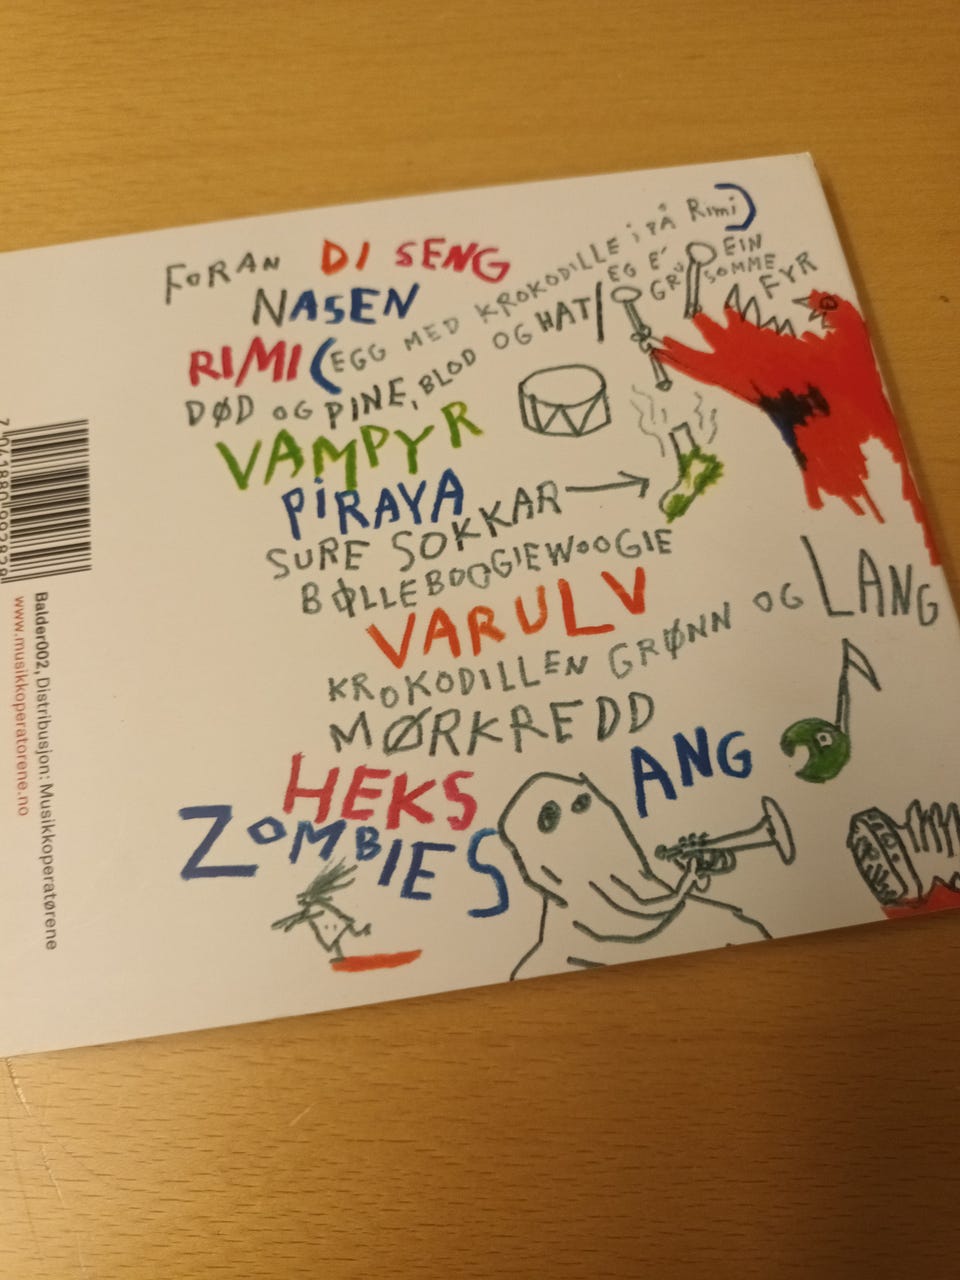 FORAN DI SENG
NASEN
RIMI (EGG MED KROKODILLE i PÅ Rimi)
DØD OG PINE, BLOD OG HAT/ EG E' EIN GRUSOMME FYR
VAMPYR
PIRAYA
SURE SOKKAR
BØLLEBOOGIEWOOGIE
VARULV
KROKODILLEN GRØNN OG LANG
MØRKREDD
HEKS
ANG
ZOMBIES
Balder002, Distribusjon: Musikkoperatørene
www.musikkoperatorene.no